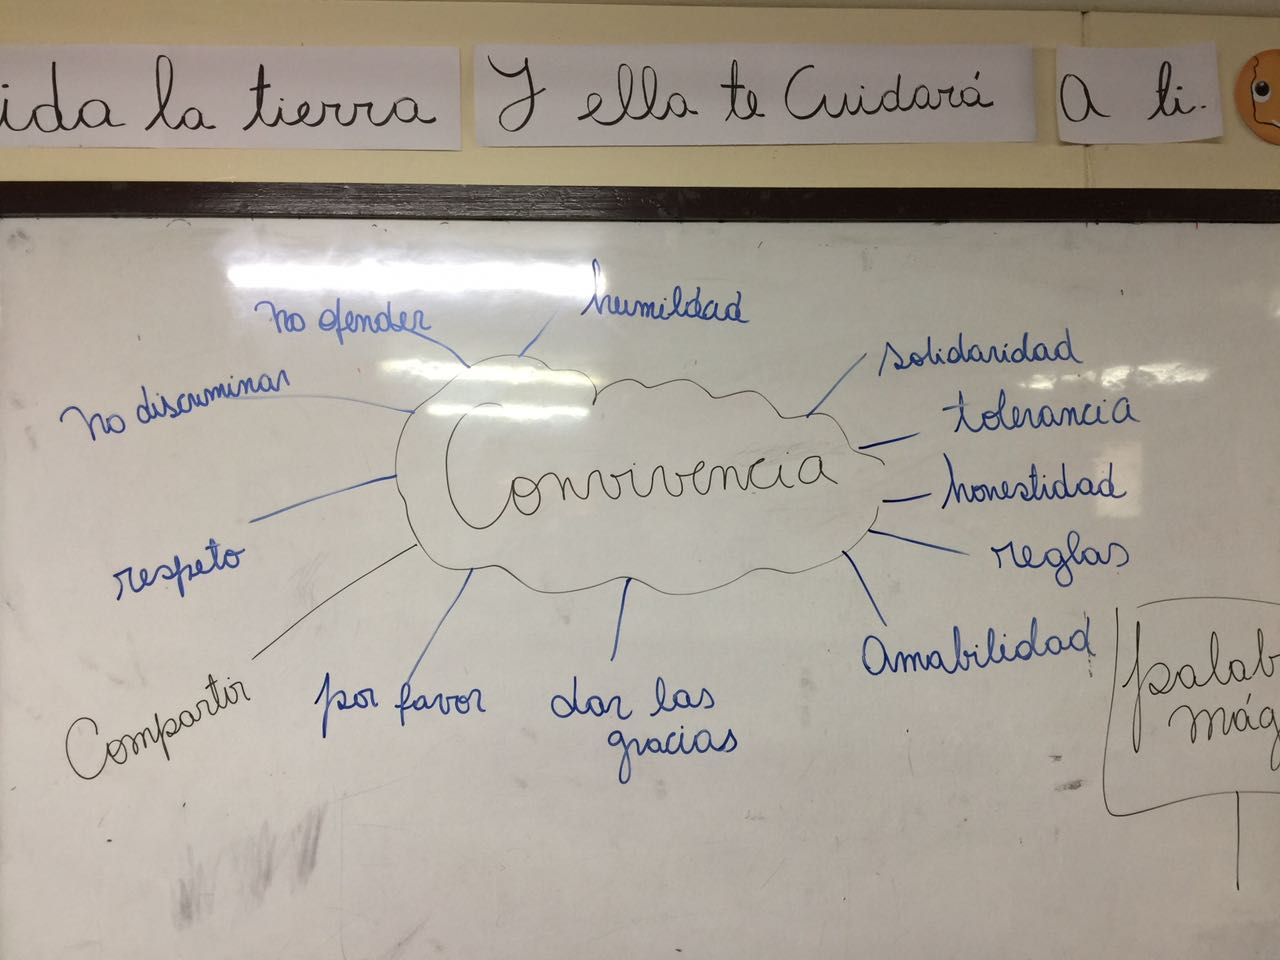 ida la tierra Y ella te Cuidará A ti.
no ofender
humildad
no discriminar
solidaridad
tolerancia
Convivencia
honestidad
respeto
reglas
Amabilidad
Compartir
por favor
dar las
gracias
palab
mág